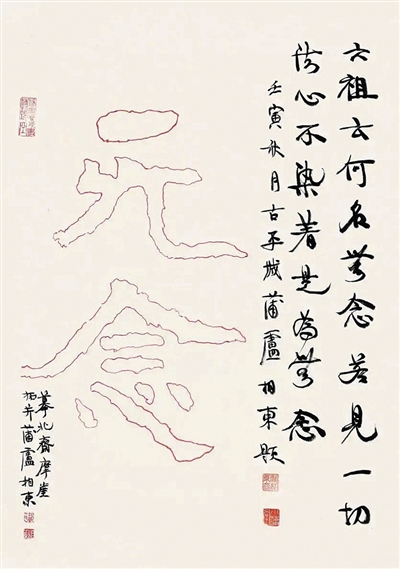 六祖云何名無念若見一切
法心不染着是為無念
壬寅秋月古平城蒲廬相東題
无念
摹北齊摩崖
拓片蒲廬相東